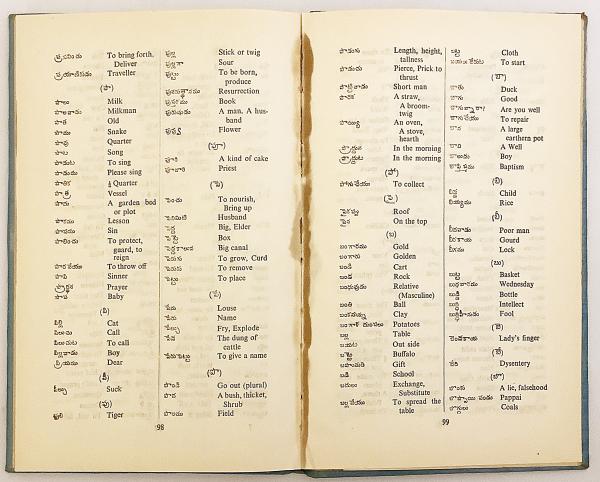 ప్రసవించు To bring forth, Deliver
ప్రయాణికుడు Traveller
(పా)
పాలు Milk
పాలవాడు Milkman
పాత Old
పాము Snake
పావు Quarter
పాట Song
పాడుట To sing
పాడుము Please sing
పాతిక ¼ Quarter
పాత్ర Vessel
పాదు A garden bed or plot
పాఠము Lesson
పాపము Sin
పాలించు To protect, guard, to reign
పారవేయు To throw off
పాపి Sinner
ప్రార్థన Prayer
పాప Baby
(పి)
పిల్లి Cat
పిలుచు Call
పిలుచుట To call
పిల్లవాడు Boy
ప్రియము Dear
(పీ)
పీల్చు Suck
(పు)
పులి Tiger
పుల్ల Stick or twig
పుల్లగా Sour
పుట్టు To be born, produce
పునరుత్థానము Resurrection
పుస్తకము Book
పురుషుడు A man. A husband
పుష్పం Flower
(పూ)
పూరి A kind of cake
పూజారి Priest
(పె)
పెంచు To nourish, Bring up
పెనిమిటి Husband
పెద్ద Big, Elder
పెట్టె Box
పెద్దకాలువ Big canal
పెరుగు To grow, Curd
పెరుకు To remove
పెట్టు To place
(పే)
పేను Louse
పేరు Name
పేల్చు Fry, Explode
పేడ The dung of cattle
పేరుపెట్టు To give a name
(పొ)
పొండి Go out (plural)
పొద A bush, thicket, Shrub
పొలము Field
98
పొడుగు Length, height, tallness
పొడుచు Pierce, Prick to thrust
పొట్టివాడు Short man
పొరక A straw, A broom-twig
పొయ్యి An oven, A stove, hearth
ప్రొద్దున In the morning
ప్రొద్దుట In the morning
(పో)
పోగుచేయు To collect
(పై)
పైకప్పు Roof
పైన On the top
(బ)
బంగారము Gold
బంగారు Golden
బండి Cart
బండ Rock
బంధువుడు Relative (Masculine)
బంతి Ball
బంకమన్ను Clay
బంగాళ దుంపలు Potatoes
బల్ల Table
బయట Out side
బఱ్ఱె Buffalo
బహుమతి Gift
బడి School
బదులు Exchange, Substitute
బల్ల వేయు To spread the table
బట్ట Cloth
బయలు దేరుట To start
(బా)
బాతు Duck
బాగు Good
బాగున్నారా? Are you well
బాగుచేయు To repair
బాన A large earthern pot
బావి A Well
బాలుడు Boy
బాప్తిస్మము Baptism
(బి)
బిడ్డ Child
బియ్యము Rice
(బీ)
బీదవాడు Poor man
బీరకాయ Gourd
బీగము Lock
(బు)
బుట్ట Basket
బుధవారము Wednesday
బుడ్డి Bottle
బుద్ధి Intellect
బుద్ధిహీనుడు Fool
(బె)
బెండకాయ Lady's finger
(బే)
బేది Dysentery
(బొ)
బొంకు A lie, falsehood
బొప్పాయి పండు Pappai
బొగ్గులు Coals
99